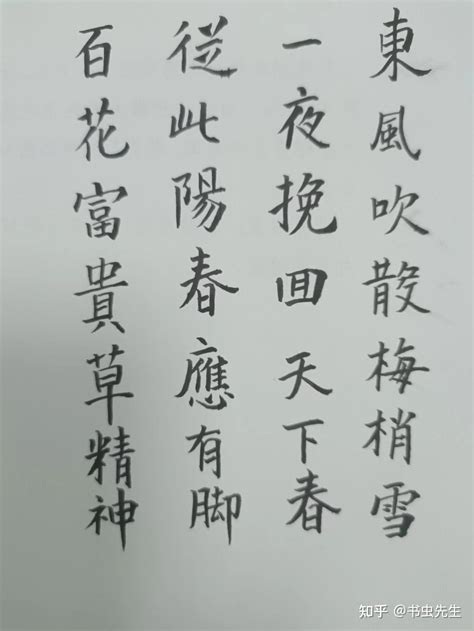 東風吹散梅梢雪
一夜挽回天下春
從此陽春應有脚
百花富貴草精神
知乎 @书虫先生